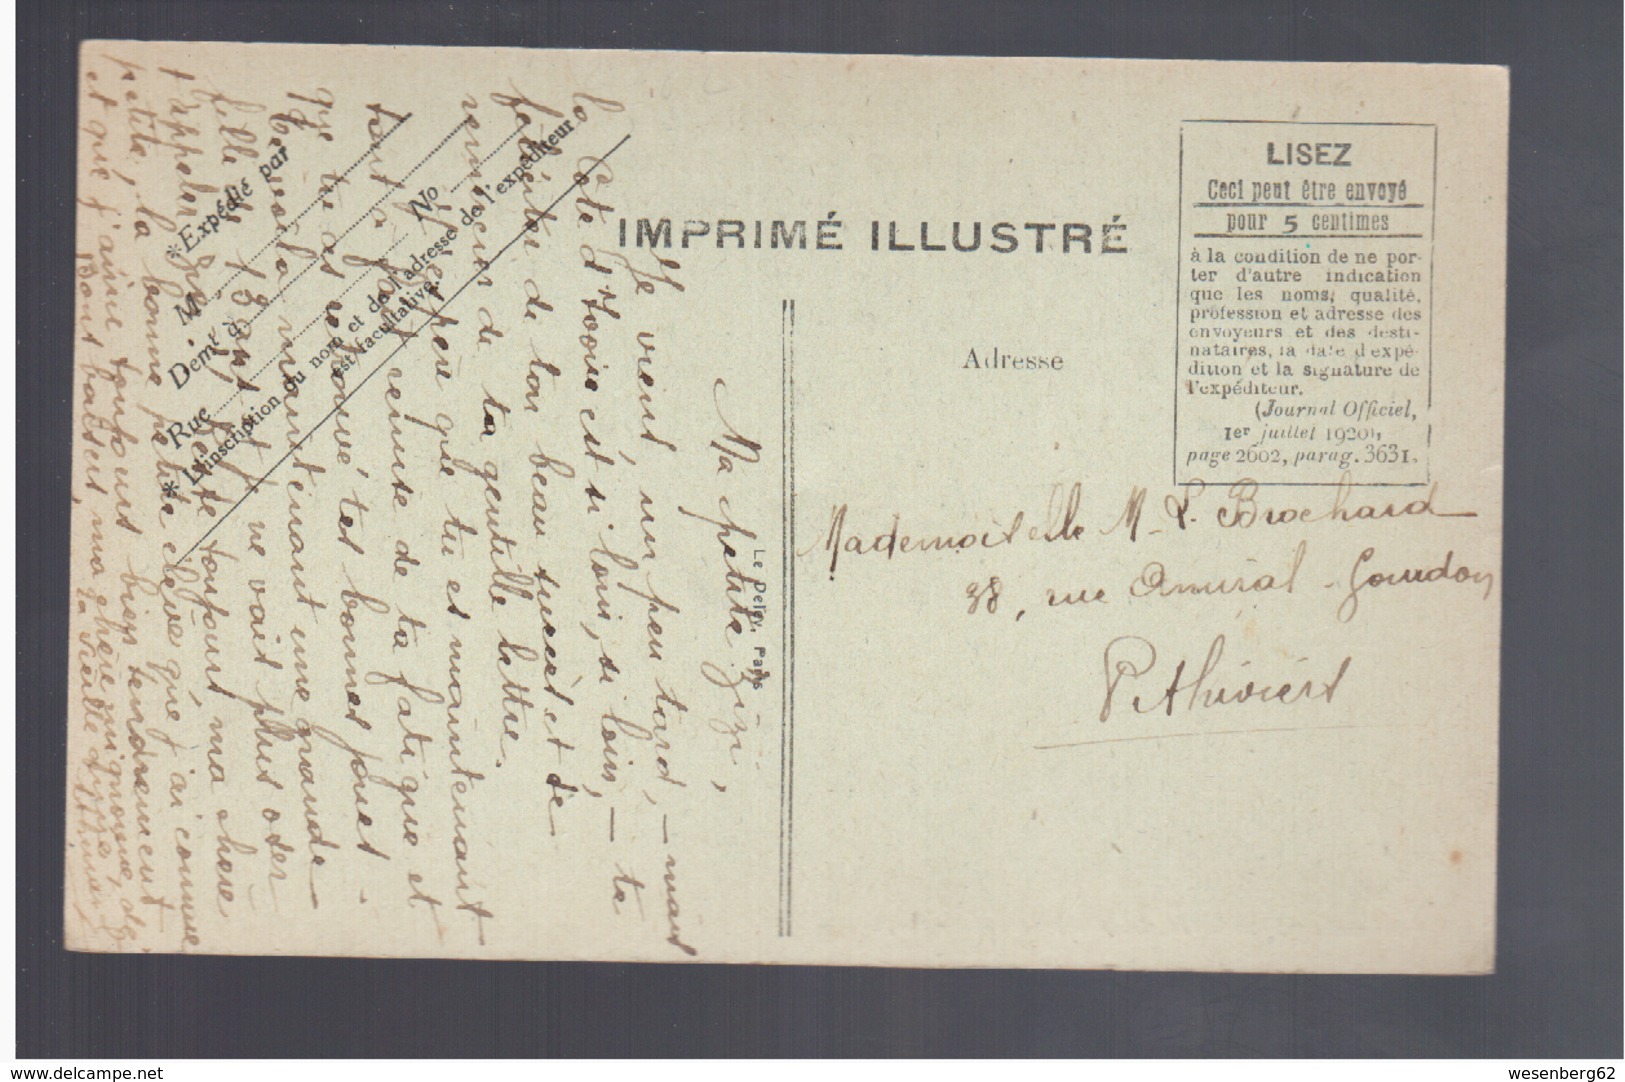 Ma petite Zizi,
Je vient, un peu tard, – mais
la Cote d'Ivoire est si loin, si loin, – te
féliciter de ton beau succès et te
remercier de ta gentille lettre.
J'espère que tu es maintenant
tout à fait remise de ta fatigue et
que tu as retrouvé tes bonnes joues.
Te voilà maintenant une grande
fille de 13 ans et je ne vais plus oser
t'appeler Zizi. Reste toujours ma chère
petite, la bonne petite élève que j'ai connue
et que j'aime toujours bien tendrement
Bons baisers, ma chère mignonne, de
ta vieille amie
*Expédié par
M
Demt à
Rue No
* L'inscription du nom et de l'adresse de l'expéditeur
est facultative.
IMPRIMÉ ILLUSTRÉ
Le Deley, Paris
LISEZ
Ceci peut être envoyé
pour 5 centimes
à la condition de ne por-
ter d'autre indication
que les noms, qualité,
profession et adresse des
envoyeurs et des desti-
nataires, la date d'expé-
dition et la signature de
l'expéditeur.
(Journal Officiel,
1er juillet 1920),
page 2602, parag. 3631.
Adresse
Mademoiselle M. L. Brochard
38, rue Amiral-Gourdon
Pithiviers
www.delcampe.net
wesenberg62